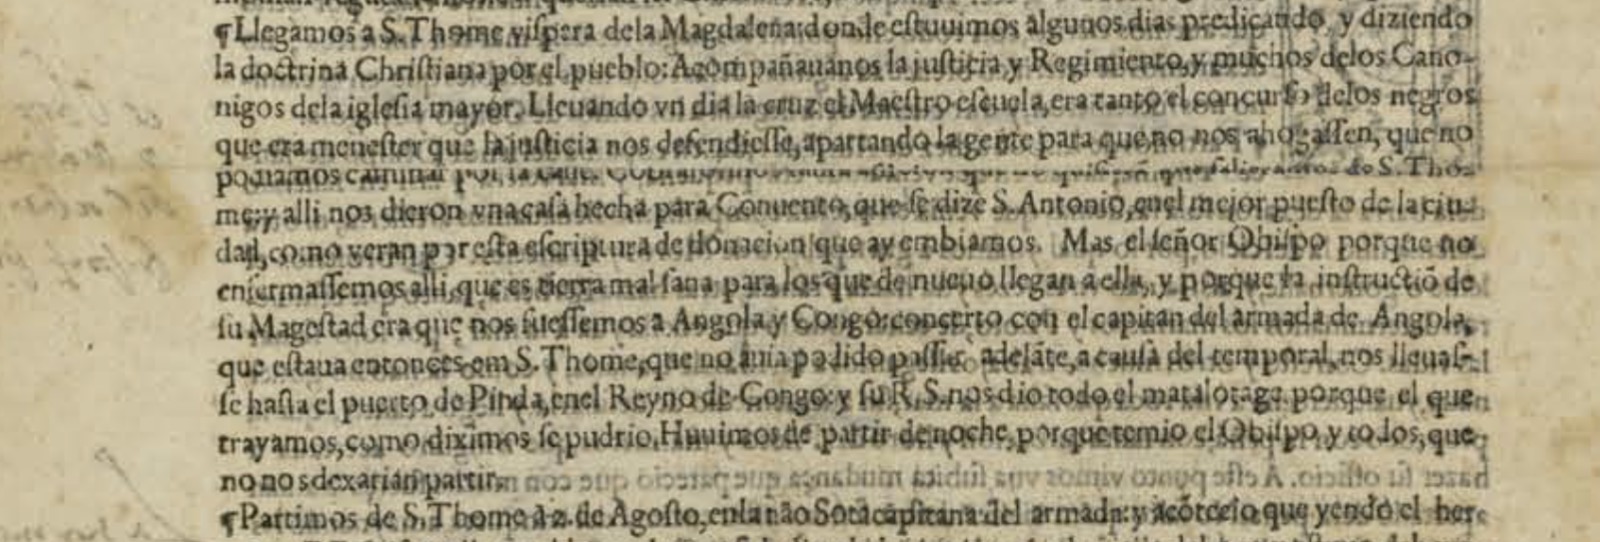 ¶Llegamos a S. Thome vispera dela Magdalena: donde estuuimos algunos dias predicando, y diziendo
la doctrina Christiana por el pueblo: Acompañauanos la justicia y Regimiento, y muchos delos Cano-
nigos dela iglesia mayor. Lleuando vn dia la cruz el Maestro escuela, era tanto el concurso delos negros
que era menester que la justicia nos defendiesse, apartando la gente para que no nos ahogassen, que no
podiamos caminar por la calle. S. Tho-
me: y alli nos dieron vna casa hecha para Conuento, que se dize S. Antonio, enel mejor puesto de la ciu-
dad, como veran por esta escriptura de donacion que ay embiamos. Mas el señor Obispo porque no
enfermassemos alli, que es tierra mal sana para los que de nueuo llegan a ella, y porque la instructiõ de
su Magestad era que nos fuessemos a Angola y Congo: concerto con el capitan del armada de Angola,
que estaua entonces em S. Thome, que no auia podido passar adelãte, a causa del temporal, nos lleuas-
se hasta el puerto de Pinda, enel Reyno de Congo: y su R. S. nos dio todo el matalotage porque el que
trayamos, como diximos se pudrio. Huuimos de partir de noche, porque temio el Obispo, y todos, que
no nos dexarian partir.
¶Partimos de S. Thome a 2. de Agosto, enla não Sota capitana del armada: y acõtecio que yendo el